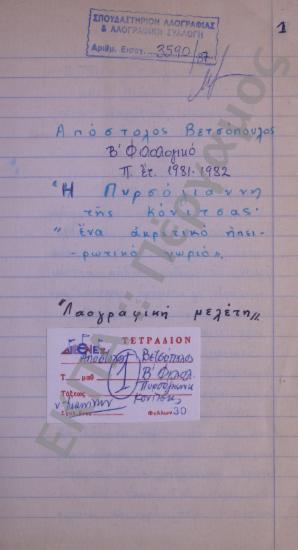 1
ΣΠΟΥΔΑΣΤΗΡΙΟΝ ΛΑΟΓΡΑΦΙΑΣ
& ΛΑΟΓΡΑΦΙΚΗ ΣΥΛΛΟΓΗ
Αριθμ. Εισαγ. 3590/87
Απόστολος Βετσόπουλος
Β' Φιλολογικό
Π. έτ. 1981-1982
"Η Πυρσόγιαννη
της Κόνιτσας·
"ένα ακριτικό ηπει-
ρωτικό χωριό".
"Λαογραφική μελέτη"
ΔΙΕΘΝΕΣ ΤΕΤΡΑΔΙΟΝ
Απόστολος Βετσόπουλος
Τ μαθ 1 Β' Φιλολ.
Τάξεως Πυρσόγιαννη
Ν. Ιωαννίνων Κόνιτσας
Φύλλων 30
ΕΚΠΑ :: Πέργαμος